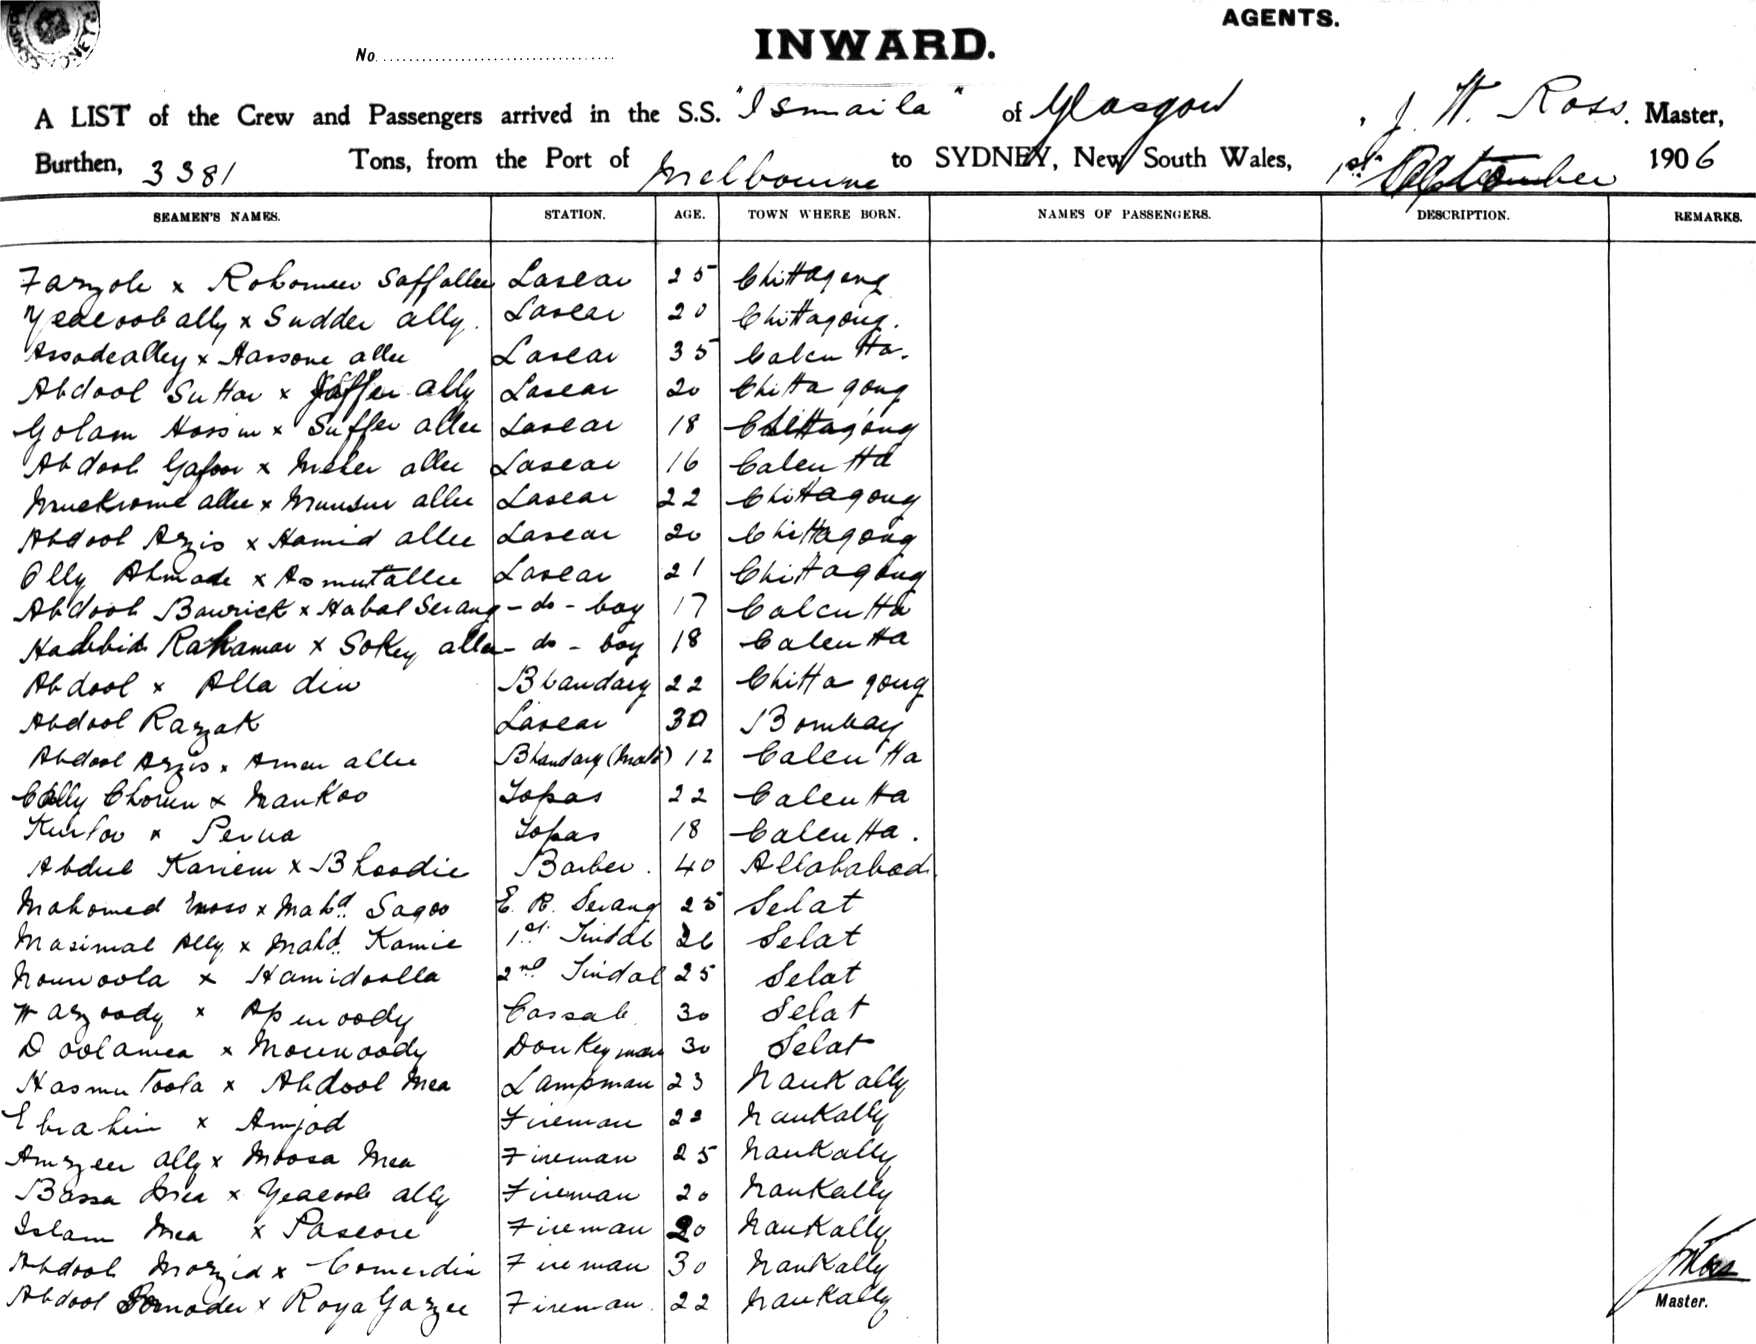 AGENTS.
No.
INWARD.
A LIST of the Crew and Passengers arrived in the S.S. "Ismaila" of Glasgow, J. W. Ross. Master,
Burthen, 3381 Tons, from the Port of Melbourne to SYDNEY, New South Wales, 1st September 1906
SEAMEN'S NAMES. STATION. AGE. TOWN WHERE BORN. NAMES OF PASSENGERS. DESCRIPTION. REMARKS.
Fazyole x Rohomeer Saffallee Lascar 25 Chittagong
Yeacoob ally x Sudder ally. Lascar 20 Chittagong.
Assadealley x Hassone allee Lascar 35 Calcutta.
Abdool Suttar x Jaffer ally Lascar 20 Chittagong
Golam Hossin x Suffer allee Lascar 18 Chittagong
Abdool Gafoor x Meher allee Lascar 16 Calcutta
Muckrome allee x Munsur allee Lascar 22 Chittagong
Abdool Azzis x Hamid allee Lascar 20 Chittagong
Olly Ahmade x Asmutallee Lascar 21 Chittagong
Abdool Bawrick x Habal Serang - do - boy 17 Calcutta
Rahamar x Sokey allee - do - boy 18 Calcutta
Abdool x Alla din Bhandary 22 Chittagong
Abdool Razzak Lascar 30 Bombay
Abdool Azzis x Amer allee Bhandary (Mate) 12 Calcutta
Cally Churn x Mankoo Topas 22 Calcutta
x Topas 18 Calcutta.
Abdul Kariem x Bhoodie Barber. 40 Allahabad.
Mahomed x Mahd. Sagoo E. R. Serang 25 Selat
Masimal Ally x Mahd. Kamie 1st. Tindal 26 Selat
x Hamidoolla 2nd Tindal 25 Selat
Wazoody x Cassab. 30 Selat
Doolamea x Monwoody Donkeyman 30 Selat
Hasmutoola x Abdool Mea Lampman 23 Naukally
Ebrahim x Amjod Fireman 22 Naukally
Amzeer ally x Moosa Mea Fireman 25 Naukally
Bassa Mea x Yeacoob ally Fireman 20 Naukally
Islam Mea x Pascore Fireman 20 Naukally
Abdool Mozzid x Comerdin Fireman 30 Naukally
Abdool x Roya Gazzee Fireman. 22 Naukally
Master.